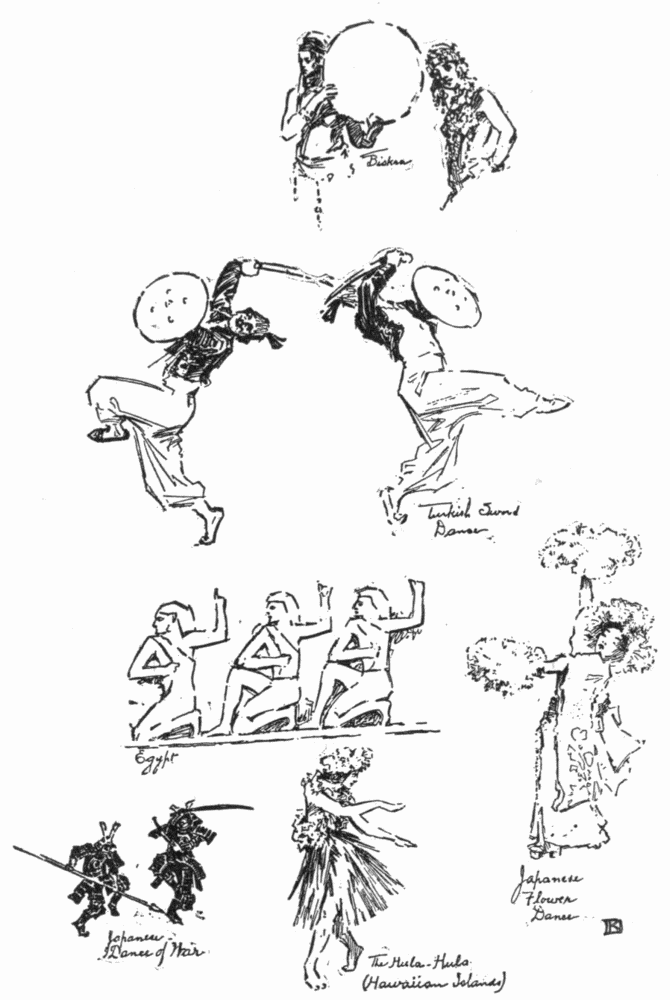 Biskra
Turkish Sword
Dance
Egypt
Japanese
Flower
Dance
Japanese
Dance of War
The Hula-Hula
(Hawaiian Islands)